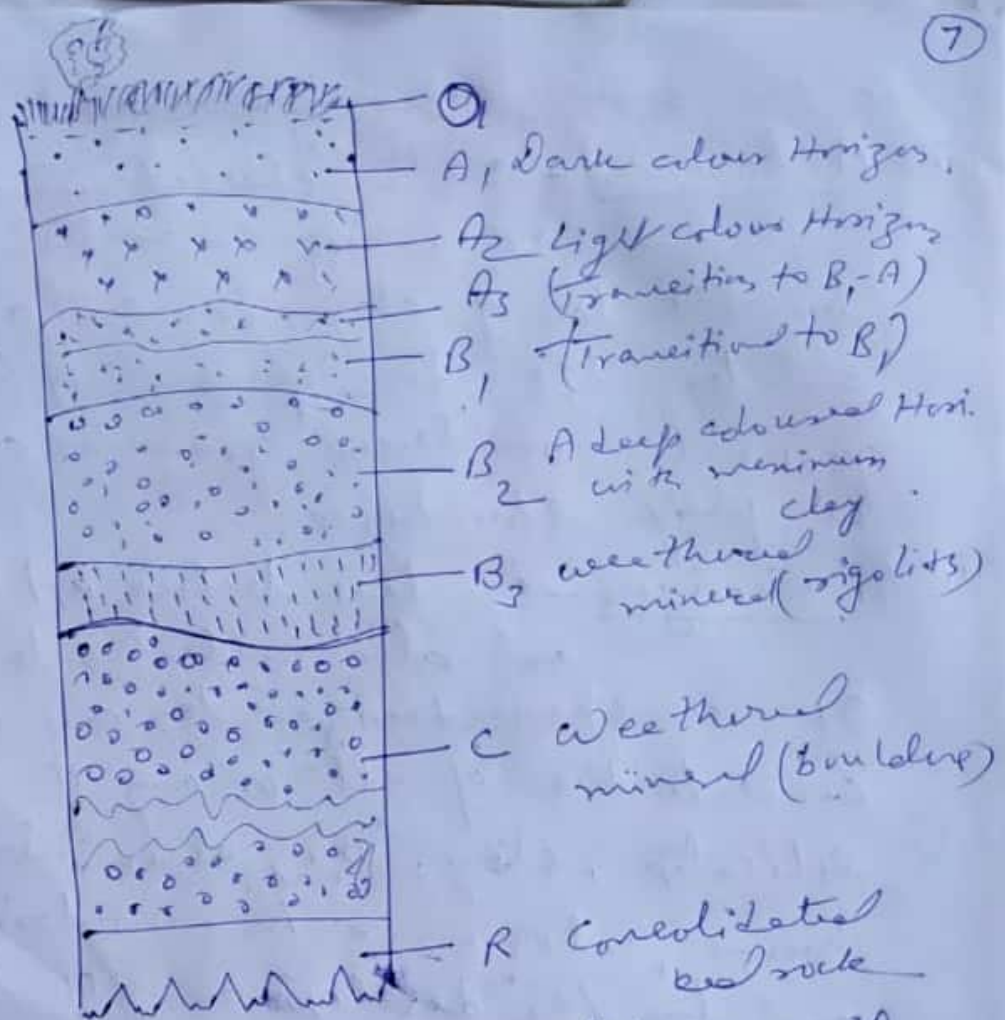 7
O1
A1 Dark colour Horizon.
A2 Light colour Horizon
A3 (Transition to B1-A)
B1 (Transitional to B1)
B2 A deep coloured Hori.
with
clay.
B3 weathered
mineral (rigolits)
C Weathered
mineral (boulders)
R Consolidated
bed rock